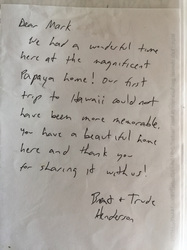 Dear Mark
We had a wonderful time
here at the magnificent
Papaya home! Our first
trip to Hawaii could not
have been more memorable.
You have a beautiful home
here and thank you
for sharing it with us!
+ Trude
Henderson